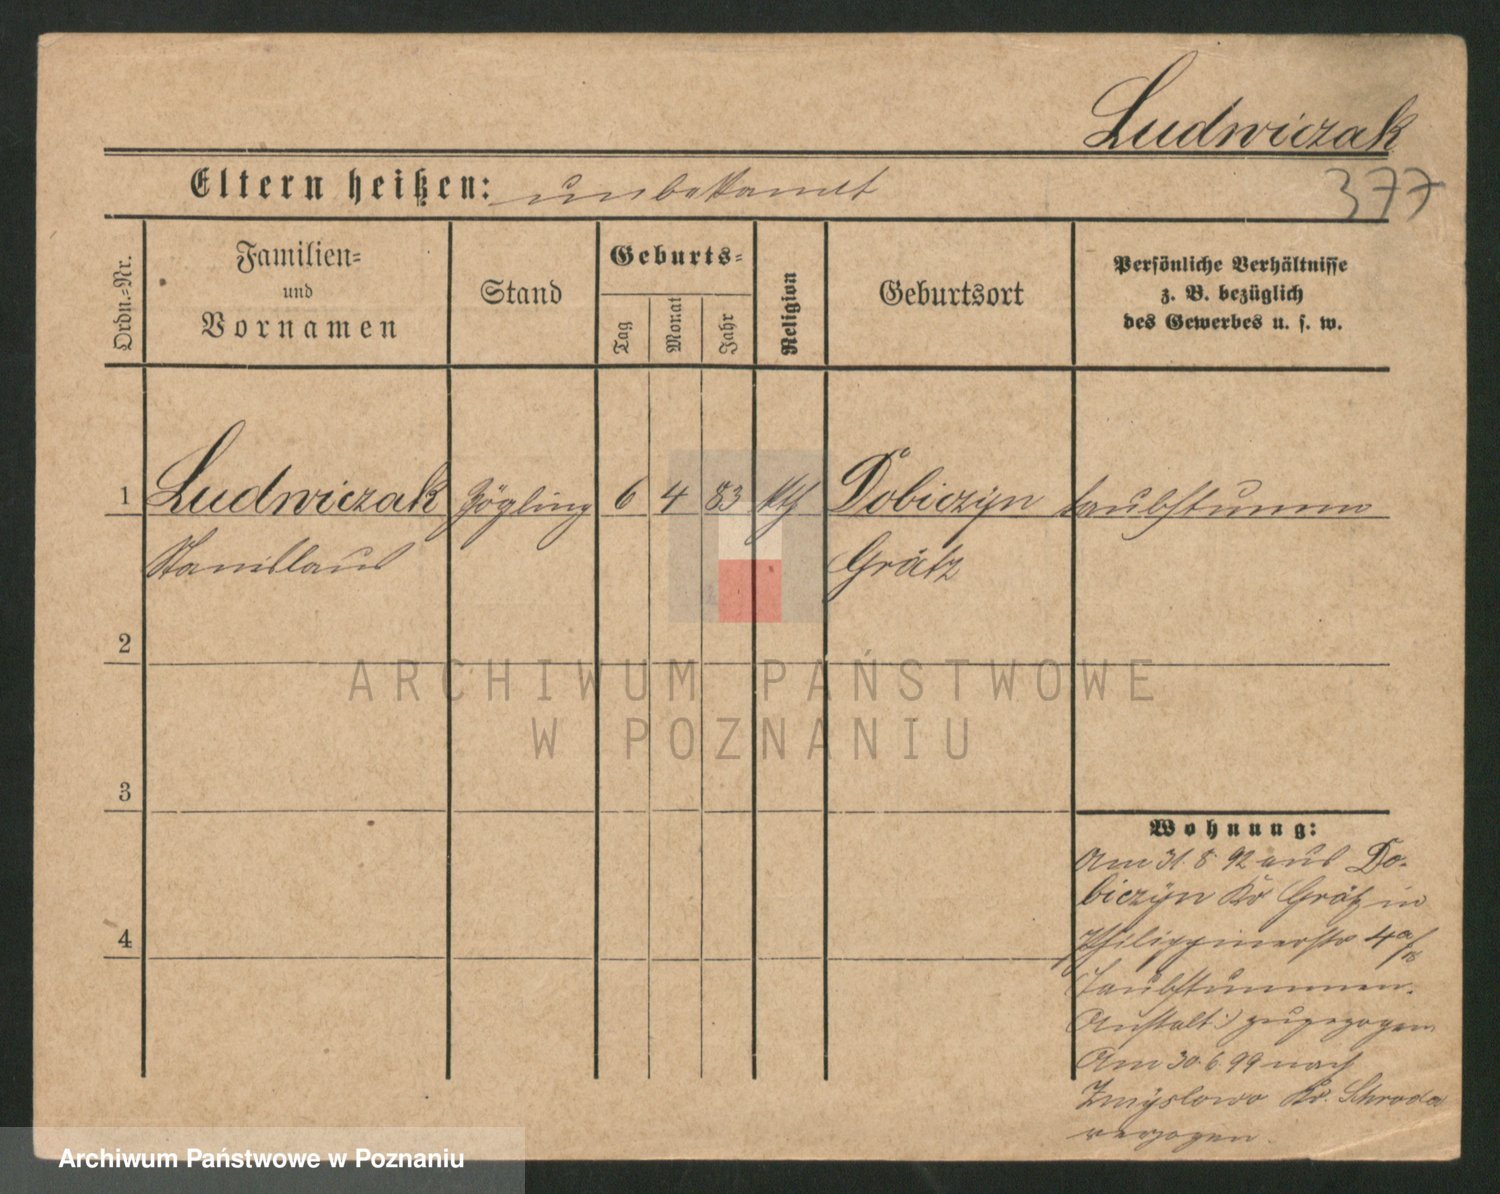 Ludwiczak
Eltern heißen: unbekannt
377
Ordn.-Nr.
Familien-
und
Vornamen
Stand
Geburts-
Tag
Monat
Jahr
Religion
Geburtsort
Persönliche Verhältnisse
z. B. bezüglich
des Gewerbes u. s. w.
1 Ludwiczak Zögling 6 4 83 kth Dobiczyn taubstumm
Stanislaus Grätz
2
ARCHIWUM PAŃSTWOWE
W POZNANIU
3
Wohnung:
Am 31 8 92 aus Do-
biczyn Kr Grätz in
Philippinerstr 4a
4
Taubstummen-
Anstalt:) zugezogen
Am 30.6.99 nach
Zmyslowo Kr. Schroda
verzogen.
Archiwum Państwowe w Poznaniu